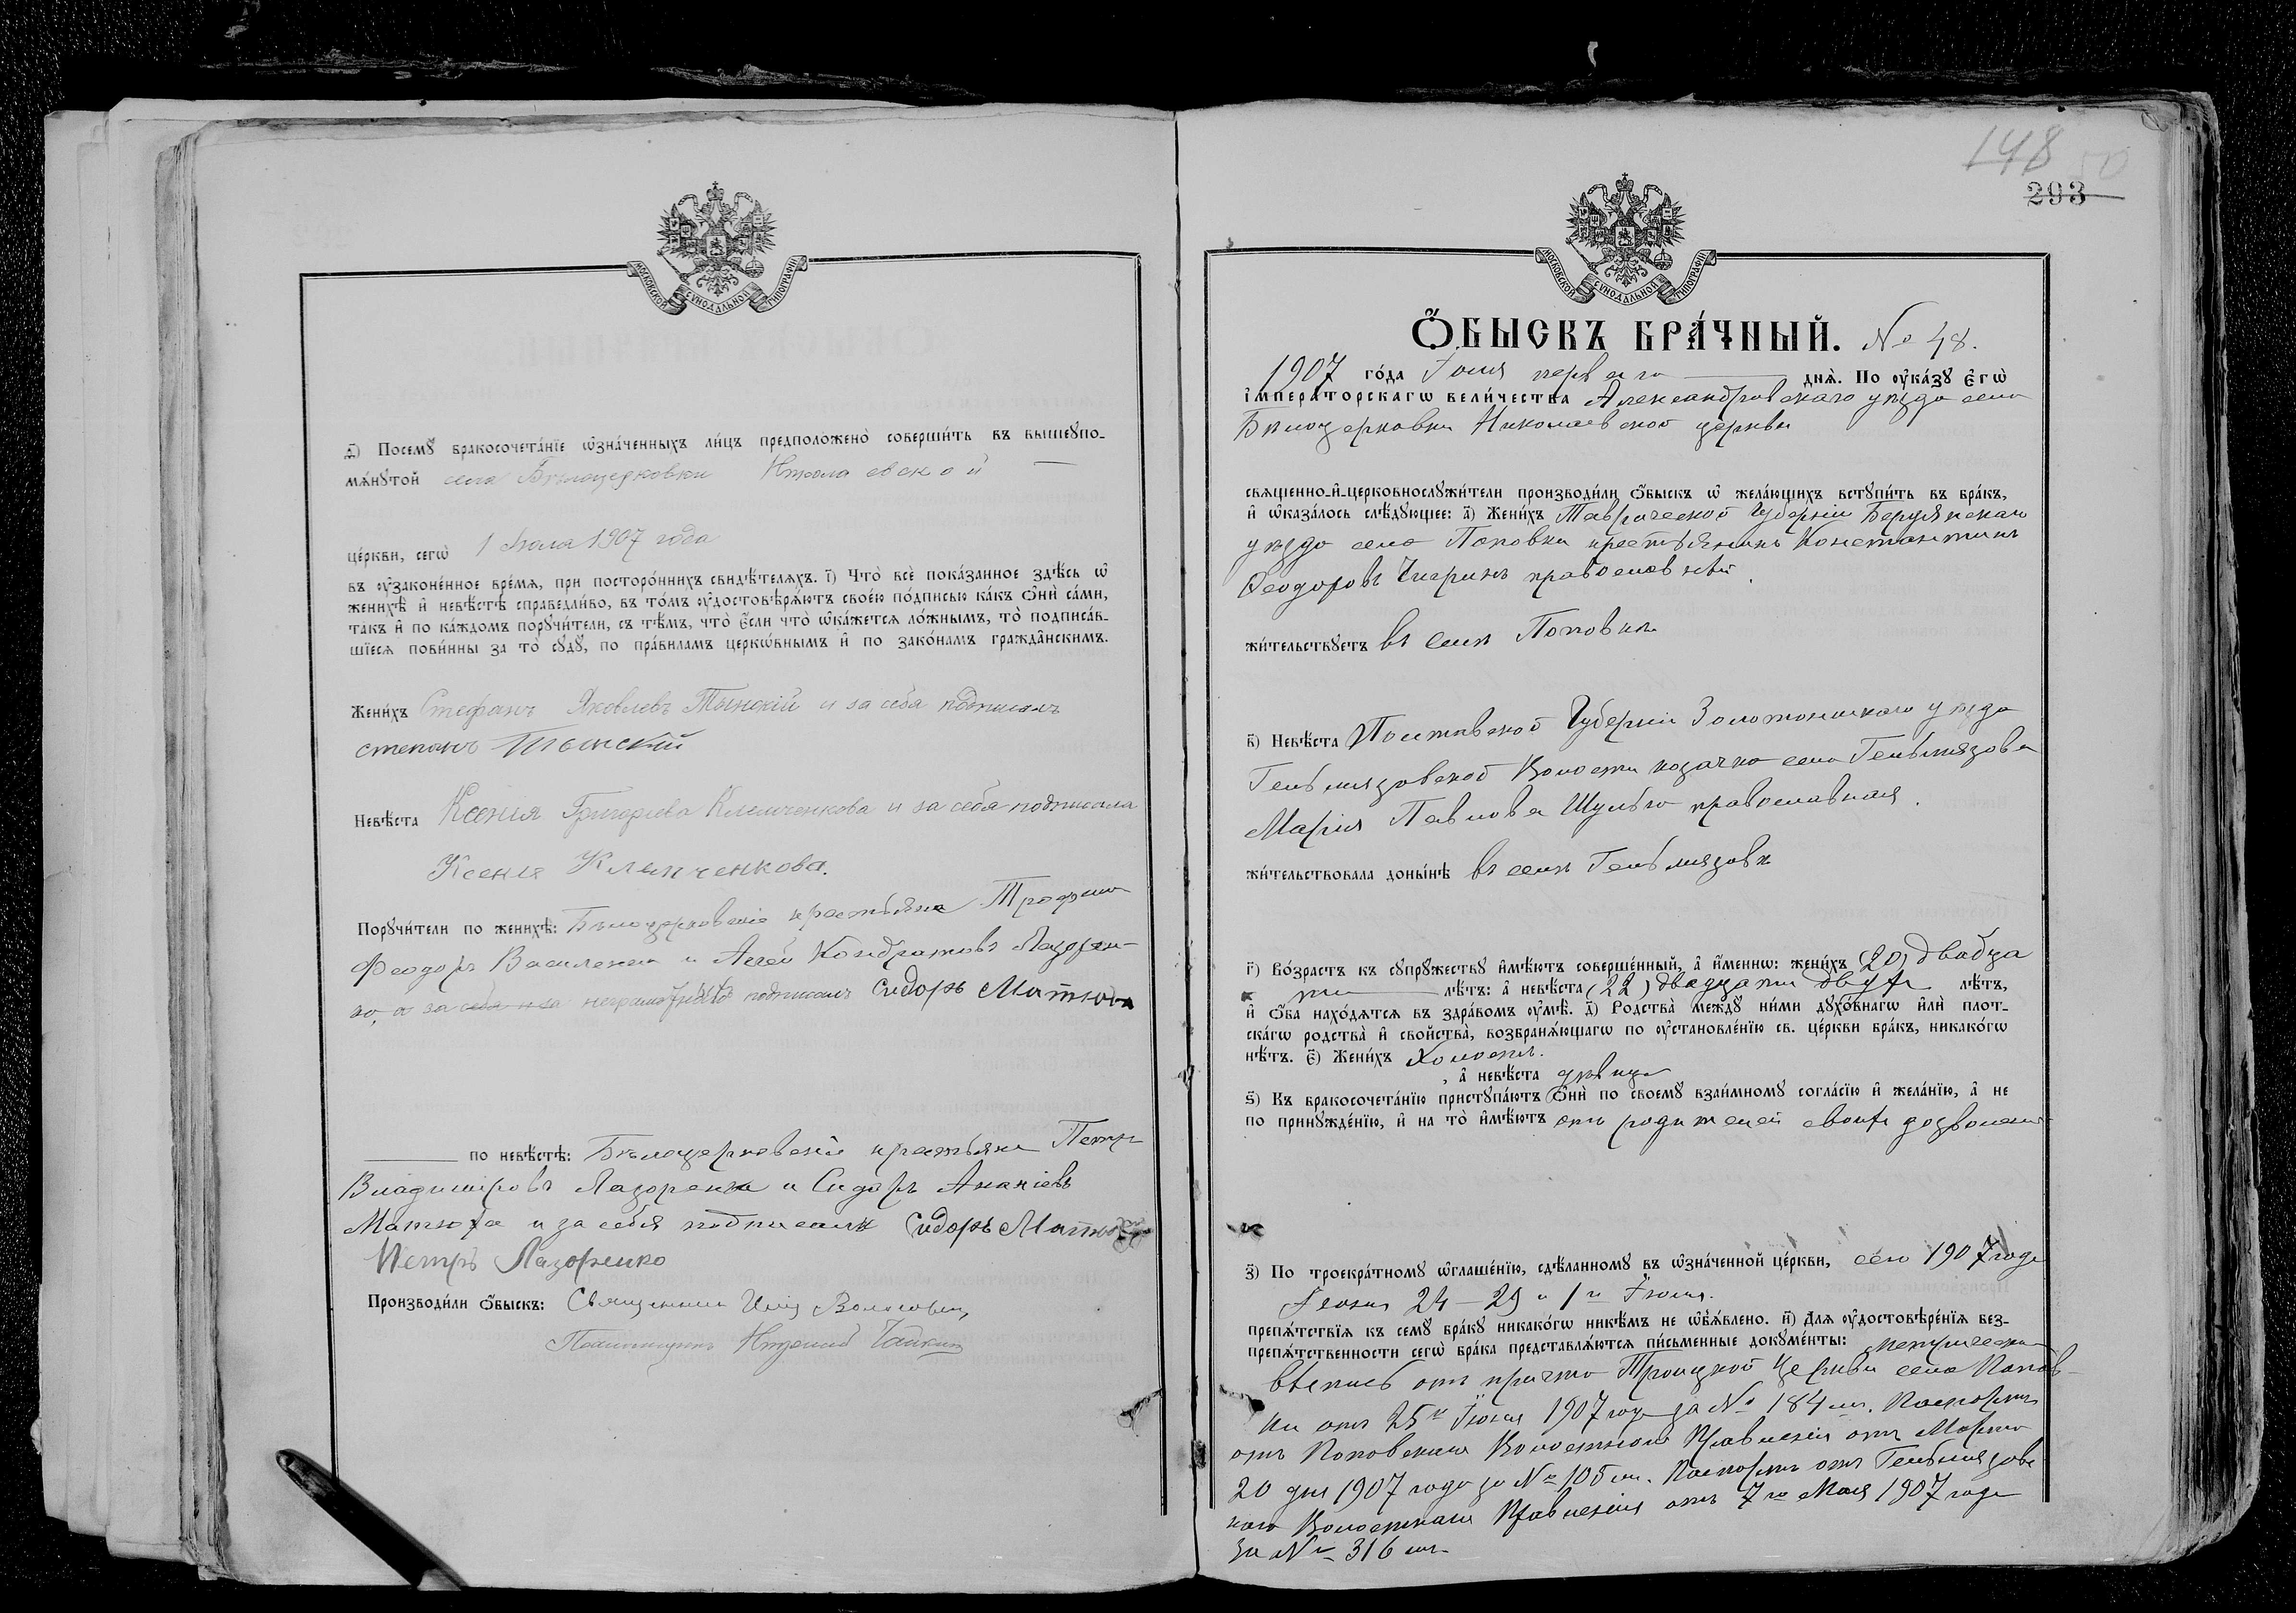 МОСКОВСКОЙ СѴНОДАЛЬНОЙ ТИПОГРАФІИ
д҃) Посемꙋ̀ бракосочета́нїе ѡ҆зна́ченныхъ ли́цъ предполо́жено соверши́ть въ вышеꙋпо-
мѧ́нꙋтой села Бѣлоцерковки Николаевской
це́ркви, сегѡ̀ 1 Іюля 1907 года
въ ᲂу҆зако́ненное вре́мѧ, при посторо́ннихъ свидѣ́телѧхъ. і҃) Что̀ всѐ пока́занное здѣ́сь ѡ҆
женихѣ̀ и҆ невѣ́стѣ справедли́во, въ то́мъ ᲂу҆достовѣрѧ́ютъ свое́ю по́дписью ка́къ ѻ҆нѝ са́ми,
та́къ и҆ по ка́ждомъ порꙋчи́тели, съ тѣ́мъ, что̀ є҆́сли что̀ ѡ҆ка́жетсѧ ло́жнымъ, то̀ подписа́в-
шїесѧ пови́нны за то̀ сꙋдꙋ̀, по пра́виламъ церко́внымъ и҆ по зако́намъ гражда́нскимъ.
Жени́хъ Стефанъ Яковлевъ Тынскій и за себя подписалъ
степанъ Тынский
Невѣ́ста Ксенія Григоріева Клемченкова и за себя подписала
Ксения Клемченкова.
Порꙋчи́тели по женихѣ̀: Бѣлоцерковскіе крестьяне Трофим
Феодоръ Василенко и Агей Кондратовъ Лазорен-
ко, а за себя и за неграмотныхъ подписалъ Сидоръ Матюха
по невѣ́стѣ: Бѣлоцерковскіе крестьяне Петръ
Владиміровъ Лазоренко и Сидоръ Ананіевъ
Матюха и за себя подписали Сидоръ Матюха
Петръ Лазоренко
Производи́ли ѻ҆́быскъ: Священникъ Илія
Псаломщикъ Чайкин
148
293
МОСКОВСКОЙ СѴНОДАЛЬНОЙ ТИПОГРАФІИ
Ѻ҆́БЫСКЪ БРА́ЧНЫЙ. № 48.
1907 го́да Іюля перваго днѧ̀. По ᲂу҆ка́зꙋ є҆гѡ̀
і҆мпера́торскагѡ вели́чества Александровскаго уѣзда села
Бѣлоцерковки Николаевской церкви
свѧщенно-и҆-церковнослꙋжи́тели производи́ли ѻ҆́быскъ ѡ҆ жела́ющихъ встꙋпи́ть въ бра́къ,
и҆ ѡ҆каза́лось слѣ́дꙋющее: а҃) Жени́хъ Таврической Губерніи Бердянскаго
уѣзда села Поповки крестьянинъ Константинъ
Феодоровъ православный
жи́тельствꙋетъ въ селѣ Поповкѣ
в҃) Невѣ́ста Полтавской Губерніи Золотоношскаго уѣзда
Гельмязовской Волости козачка села Гельмязова
Марія Павлова Шульга православная.
жи́тельствовала доны́нѣ въ селѣ Гельмязовѣ
г҃) Во́зрастъ къ сꙋпрꙋ́жествꙋ и҆мѣ́ютъ соверше́нный, а҆ и҆́менно: жени́хъ (20) двадца
ти лѣ́тъ: а҆ невѣ́ста (22) двадцати двухъ лѣ́тъ,
и҆ ѻ҆́ба нахо́дѧтсѧ въ здра́вомъ ᲂу҆мѣ̀. д҃) Родства̀ междꙋ̀ ни́ми дꙋхо́внагѡ и҆лѝ плот-
ска́гѡ родства̀ и҆ сво́йства, возбранѧ́ющагѡ по ᲂу҆становле́нїю св. це́ркви бра́къ, никако́гѡ
нѣ́тъ. є҃) Жени́хъ Холостъ.
, а҆ невѣ́ста дѣвица
ѕ҃) Къ бракосочета́нїю пристꙋпа́ютъ ѻ҆нѝ по своемꙋ̀ взаи́мномꙋ согла́сїю и҆ жела́нїю, а҆ не
по принꙋжде́нїю, и҆ на то̀ и҆мѣ́ютъ отъ родителей своихъ дозволеніе
з҃) По троекра́тномꙋ ѡ҆глаше́нїю, сдѣ́ланномꙋ въ ѡ҆зна́ченной це́ркви, сего 1907 года
Іюня 24 – 29 и 1го Іюля.
препѧ́тствїѧ къ семꙋ̀ бра́кꙋ никако́гѡ никѣ́мъ не ѡ҆б̾ѧ́влено. и҃) Длѧ ᲂу҆достовѣре́нїѧ без-
препѧ́тственности сегѡ̀ бра́ка представлѧ́ютсѧ пи́сьменные докꙋме́нты: метрическая
выпись отъ причта Троицкой Церкви села Попов-
ки отъ 25го Іюня 1907 года за № 184мъ. Паспортъ
отъ Поповскаго Волостного Правленія отъ Марта
20 дня 1907 года за № 105мъ. Паспортъ отъ Гельмязовс
каго Волостнаго Правленія отъ 7го Мая 1907 года
за № 316мъ.